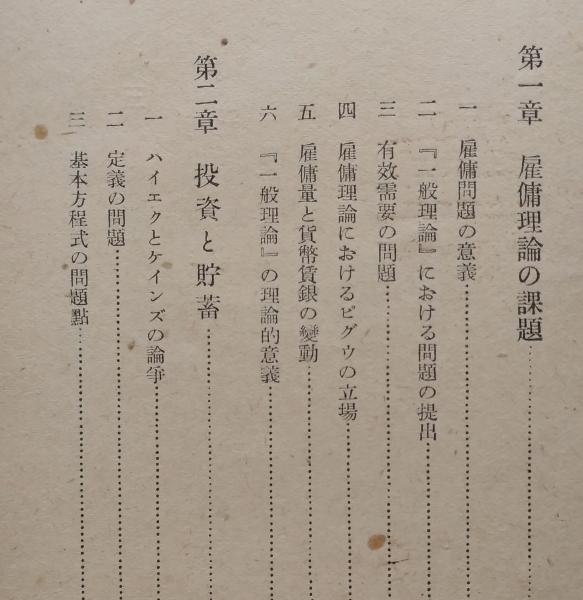 第一章 雇傭理論の課題
一 雇傭問題の意義
二 『一般理論』における問題の提出
三 有效需要の問題
四 雇傭理論におけるピグウの立場
五 雇傭量と貨幣賃銀の變動
六 『一般理論』の理論的意義
第二章 投資と貯蓄
一 ハイエクとケインズの論爭
二 定義の問題
三 基本方程式の問題點